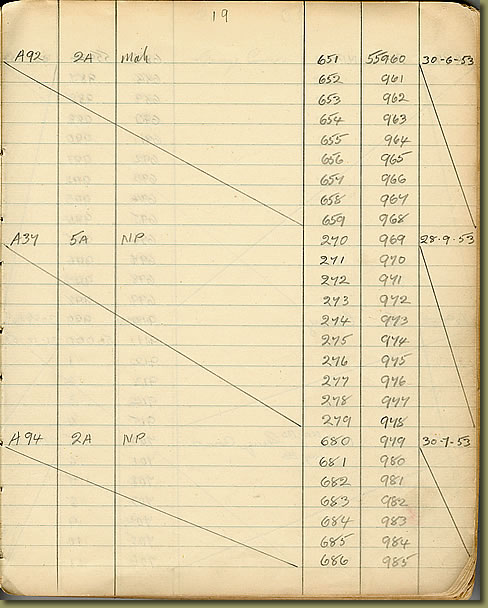 19
A92 2A Mah 651 55960 30-6-53
652 961
653 962
654 963
655 964
656 965
657 966
658 967
659 968
A37 5A NP 270 969 28-9-53
271 970
272 971
273 972
274 973
275 974
276 975
277 976
278 977
279 978
A94 2A NP 680 979 30-7-53
681 980
682 981
683 982
684 983
685 984
686 985